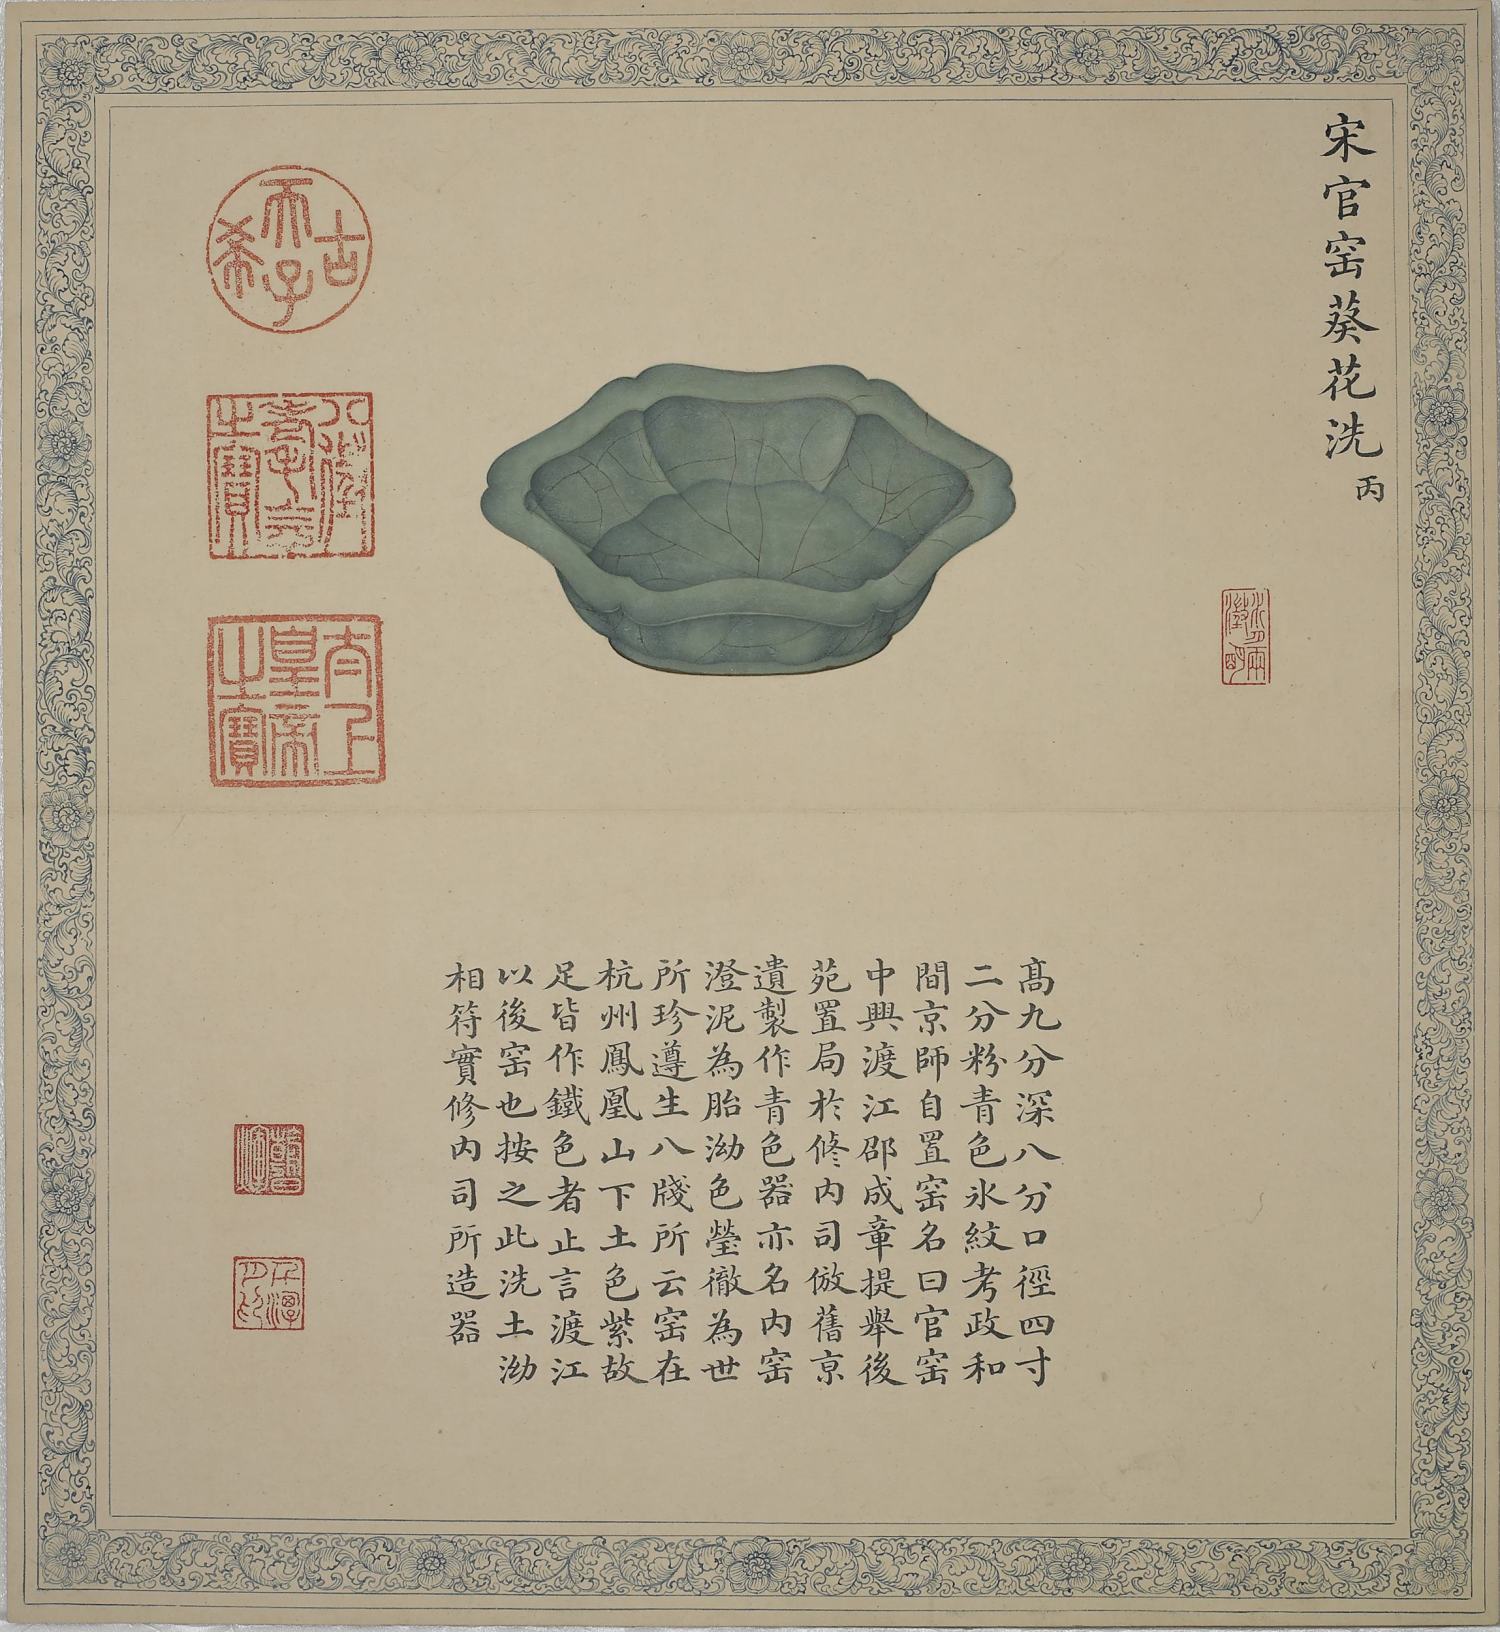 宋官窑葵花洗 丙
高九分深八分口徑四寸
二分粉青色氷紋考政和
間京師自置窑名曰官窑
中興渡江邵成章提舉後
苑置局於修内司倣舊京
遺製作青色器亦名内窑
澄泥為胎泑色瑩徹為世
所珍遵生八牋所云窑在
杭州鳳凰山下土色紫故
足皆作鐵色者止言渡江
以後窑也按之此洗土泑
相符實修内司所造器
古希天子
八徵耄念之寶
太上皇帝之寶